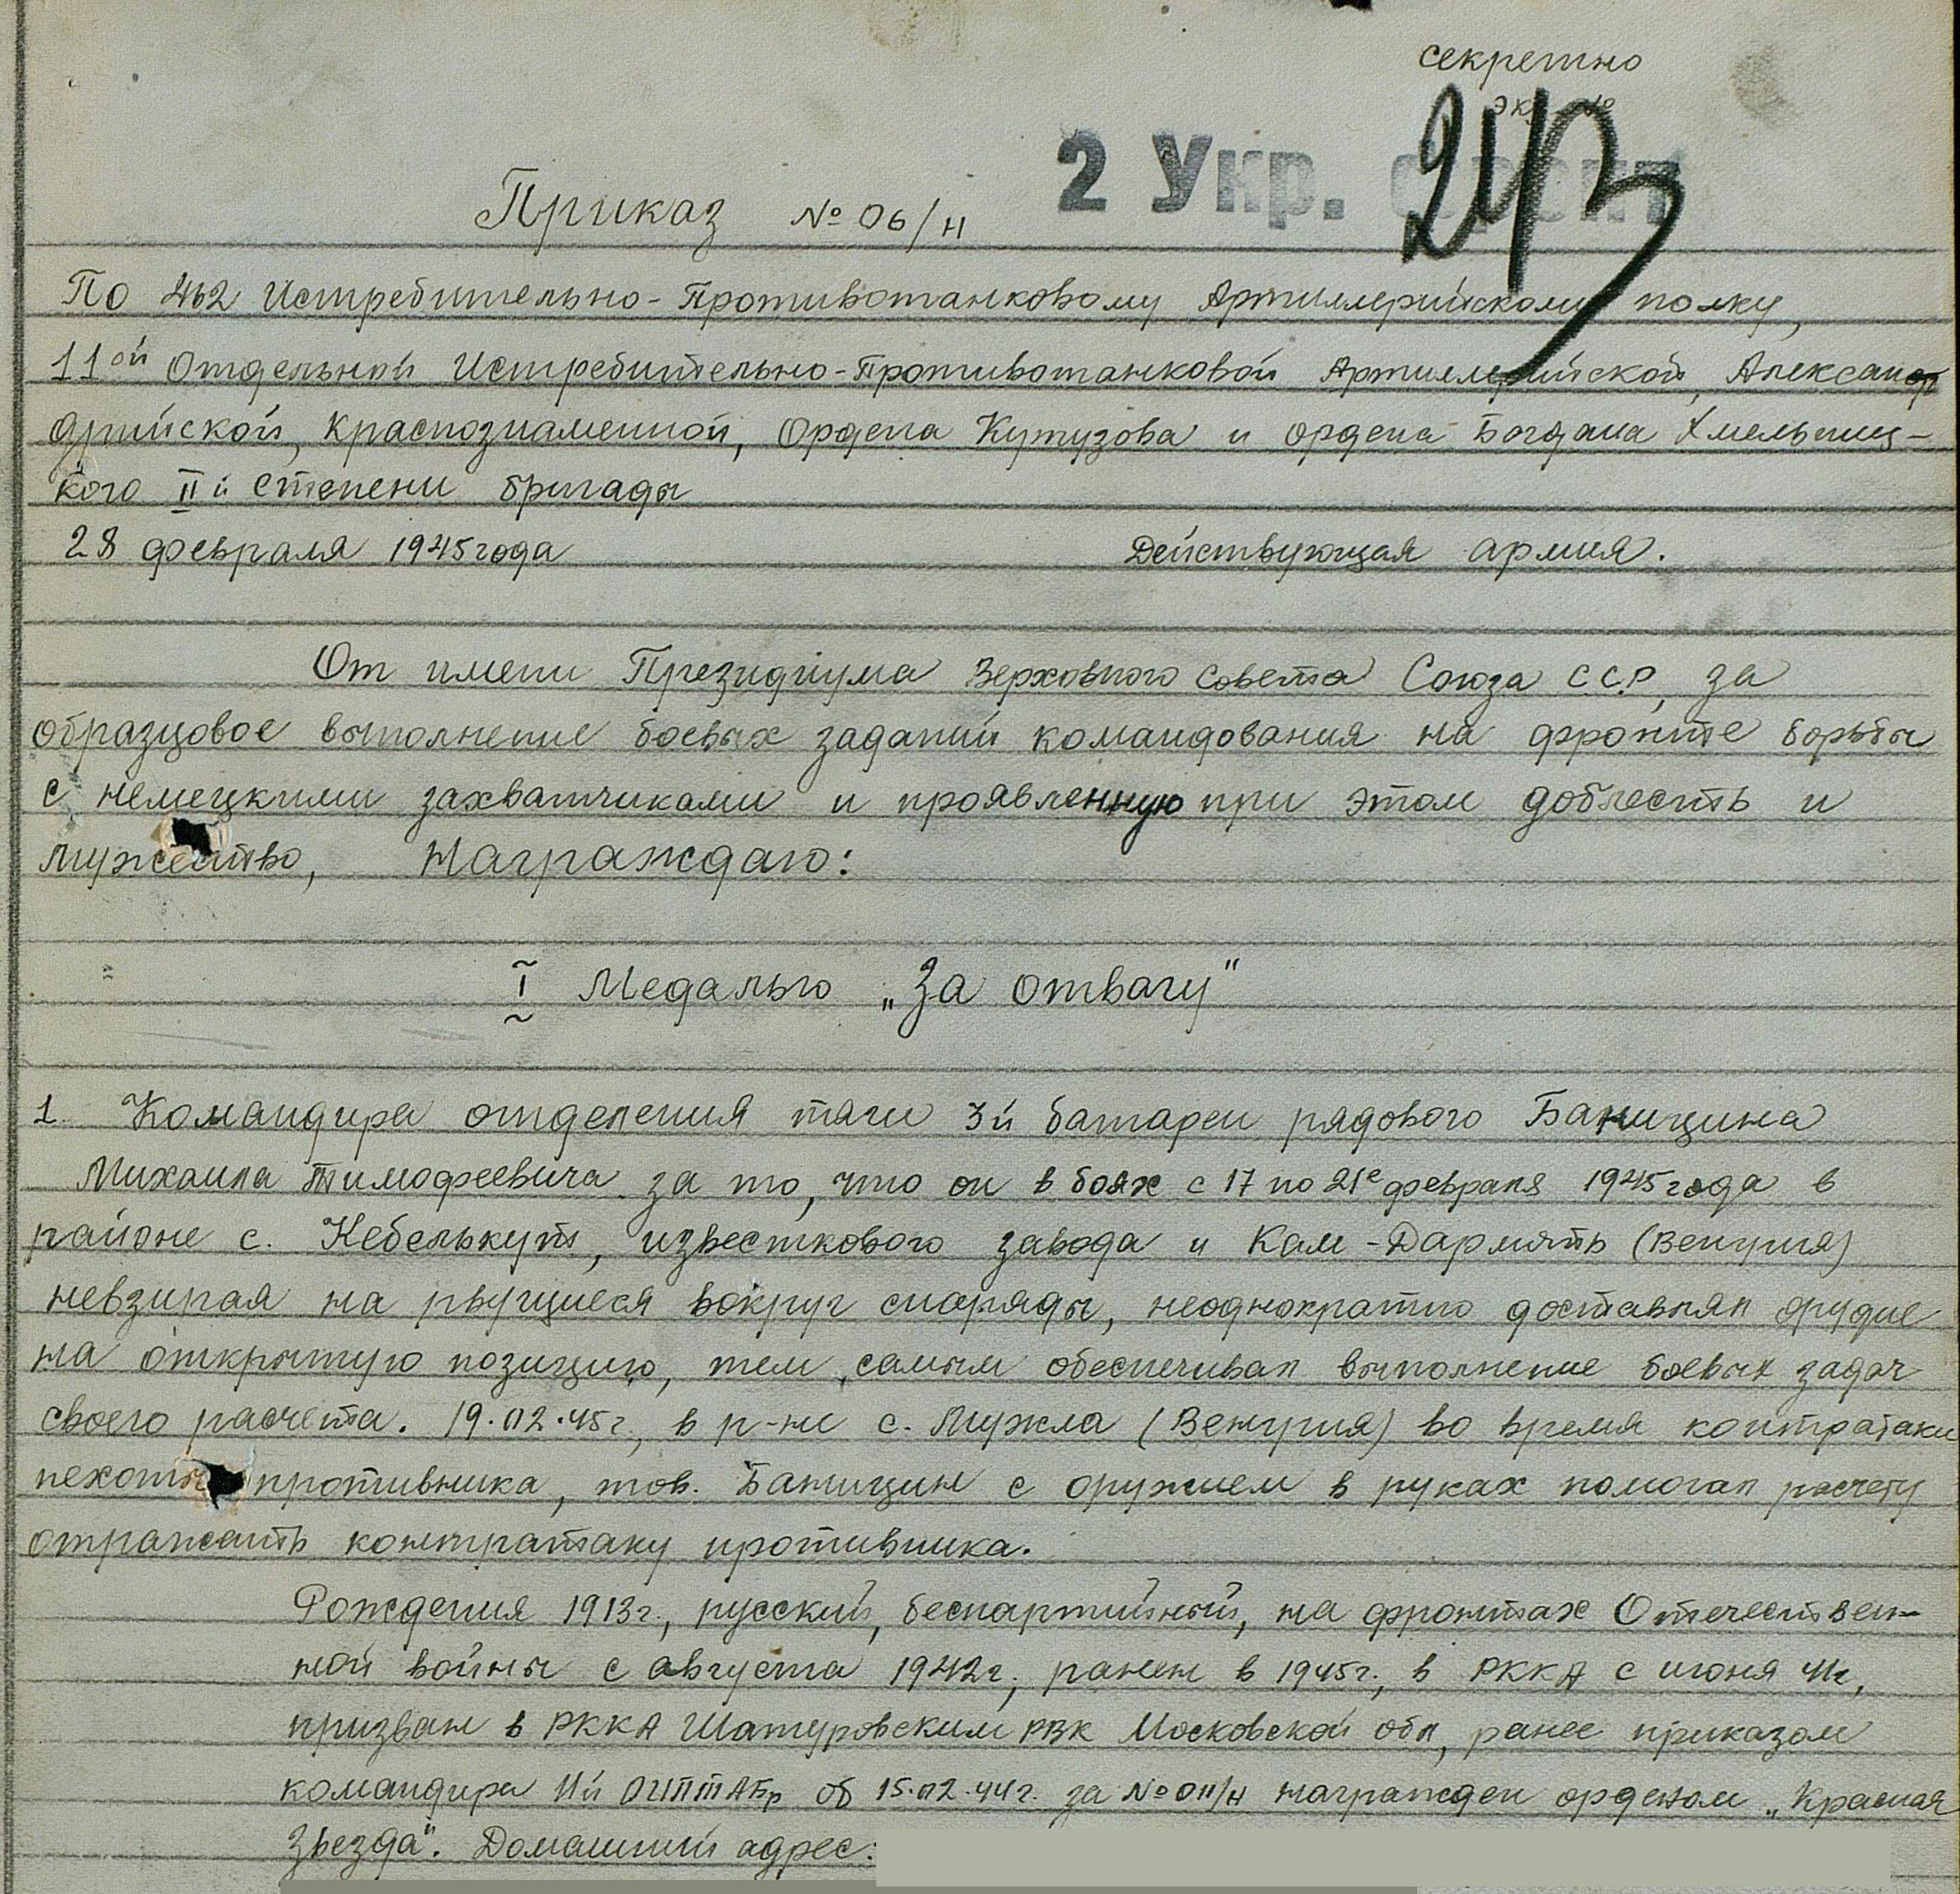 секретно
экз. №
2 Укр. фронт
Приказ № 06/н
По 462 Истребительно-Противотанковому Артиллерийскому полку,
11ой Отдельной Истребительно-Противотанковой Артиллерийской, Александ
дрийской, Краснознаменной, Ордена Кутузова и ордена Богдана Хмельниц-
кого II й степени бригады
28 февраля 1945 года Действующая армия.
От имени Президиума Верховного Совета Союза С.С.Р, за
образцовое выполнение боевых заданий командования на фронте борьбы
с немецкими захватчиками и проявленную при этом доблесть и
мужество, Награждаю:
I Медалью „За отвагу"
1. Командира отделения тяги 3й батареи рядового Банищина
Михаила Тимофеевича за то, что он в боях с 17 по 21е февраля 1945 года в
районе с. Кебелькут, известкового завода и Кам-Дармоть (Венгрия)
невзирая на рвущиеся вокруг снаряды, неоднократно доставлял орудие
на открытую позицию, тем самым обеспечивал выполнение боевых задач
своего расчета. 19.02.45г., в р-не с. Мужла (Венгрия) во время контратаки
пехоты противника, тов. Банищин с оружием в руках помогал расчету
отражать контратаку противника.
Рождения 1913г., русский, беспартийный, на фронтах Отечествен-
ной войны с августа 1942г., ранен в 1945г., в РККА с июня 41г,
призван в РККА Шатуровским РВК Московской обл, ранее приказом
командира 11й ОИПТАБр от 15.02.44г. за № 011/н награжден орденом „Красная
Звезда". Домашний адрес: